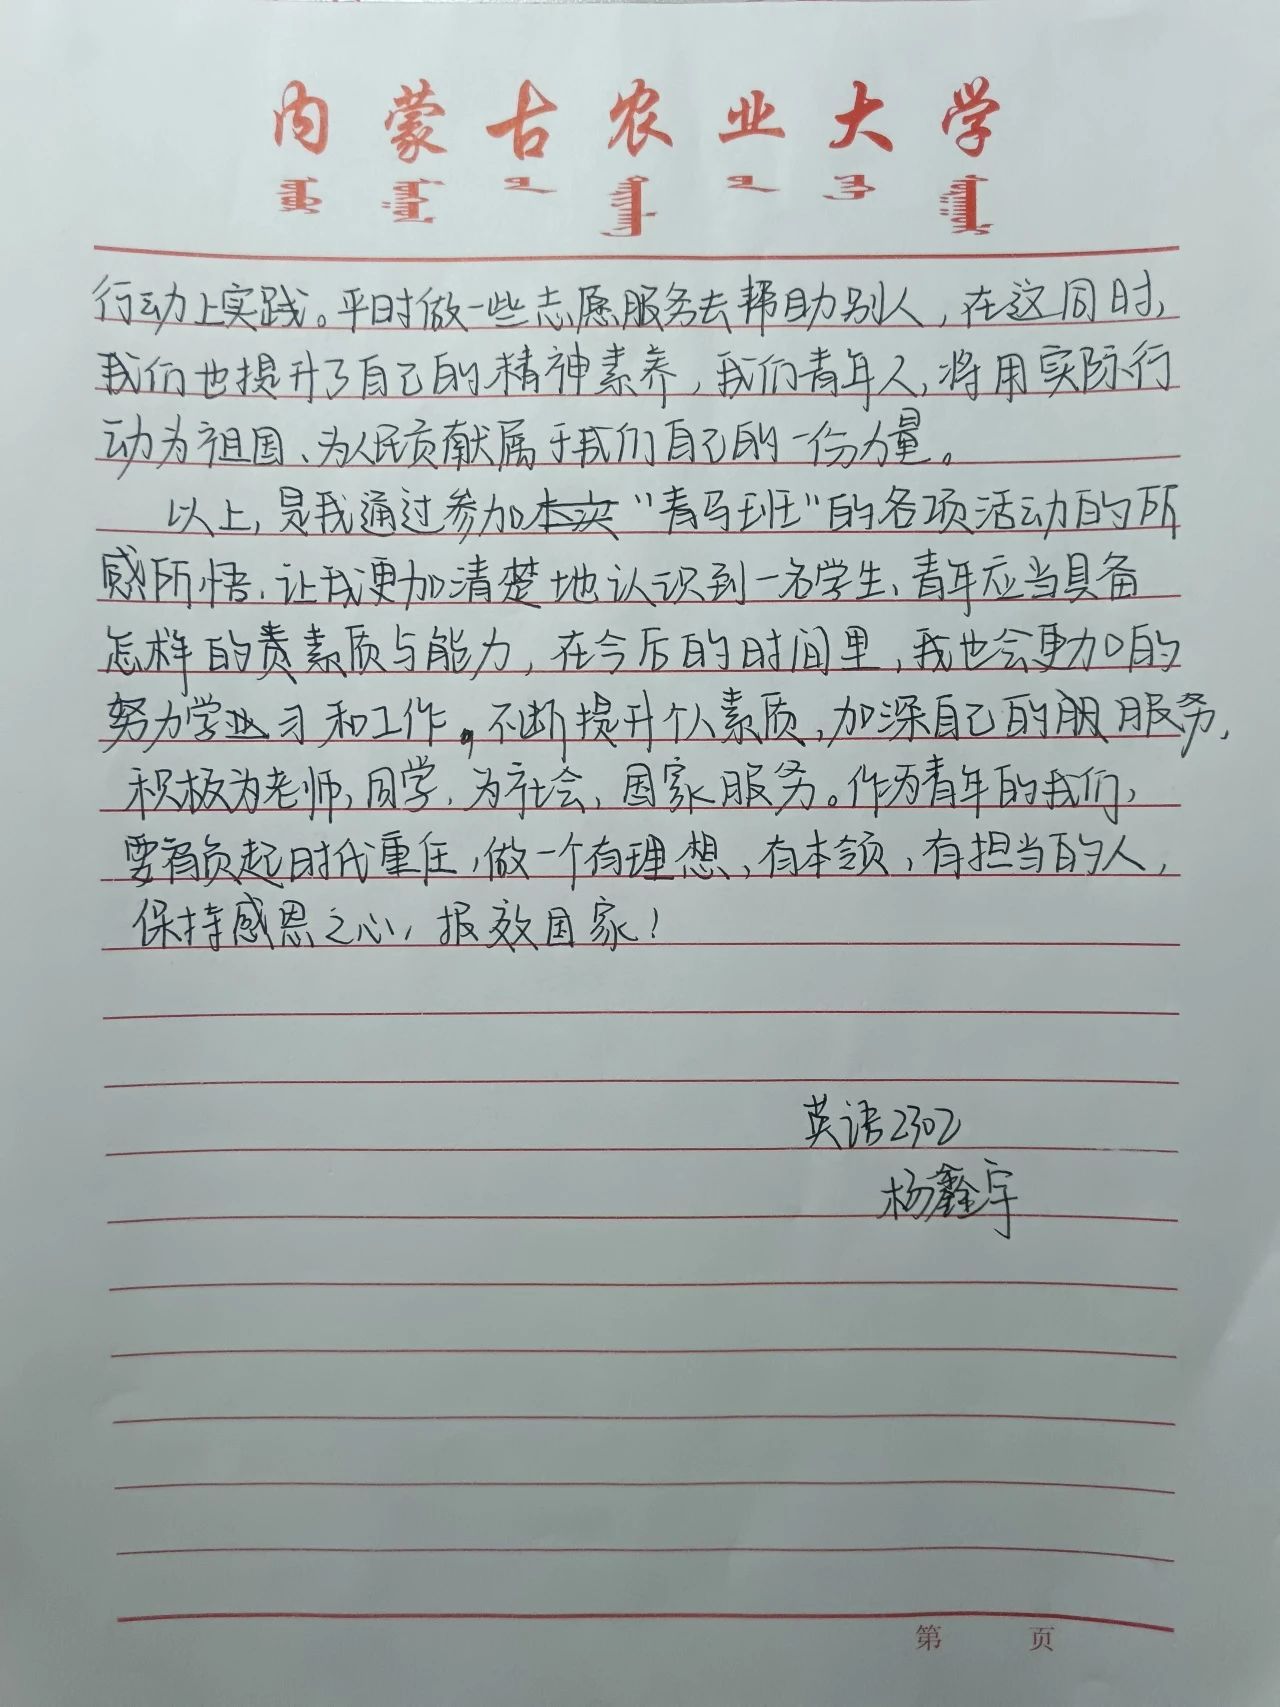 内蒙古农业大学
行动上实践。平时做一些志愿服务去帮助别人，在这同时，
我们也提升了自己的精神素养，我们青年人，将用实际行
动为祖国、为人民贡献属于我们自己的一份力量。
以上，是我通过参加"青马班"的各项活动的所
感所悟，让我更加清楚地认识到一名学生、青年应当具备
怎样的素质与能力，在今后的时间里，我也会更加的
努力学习和工作，不断提升个人素质，加深自己的服务，
积极为老师，同学，为社会，国家服务。作为青年的我们，
要肩负起时代重任，做一个有理想，有本领，有担当的人，
保持感恩之心，报效国家！
英语2302
杨鑫宇
第 页